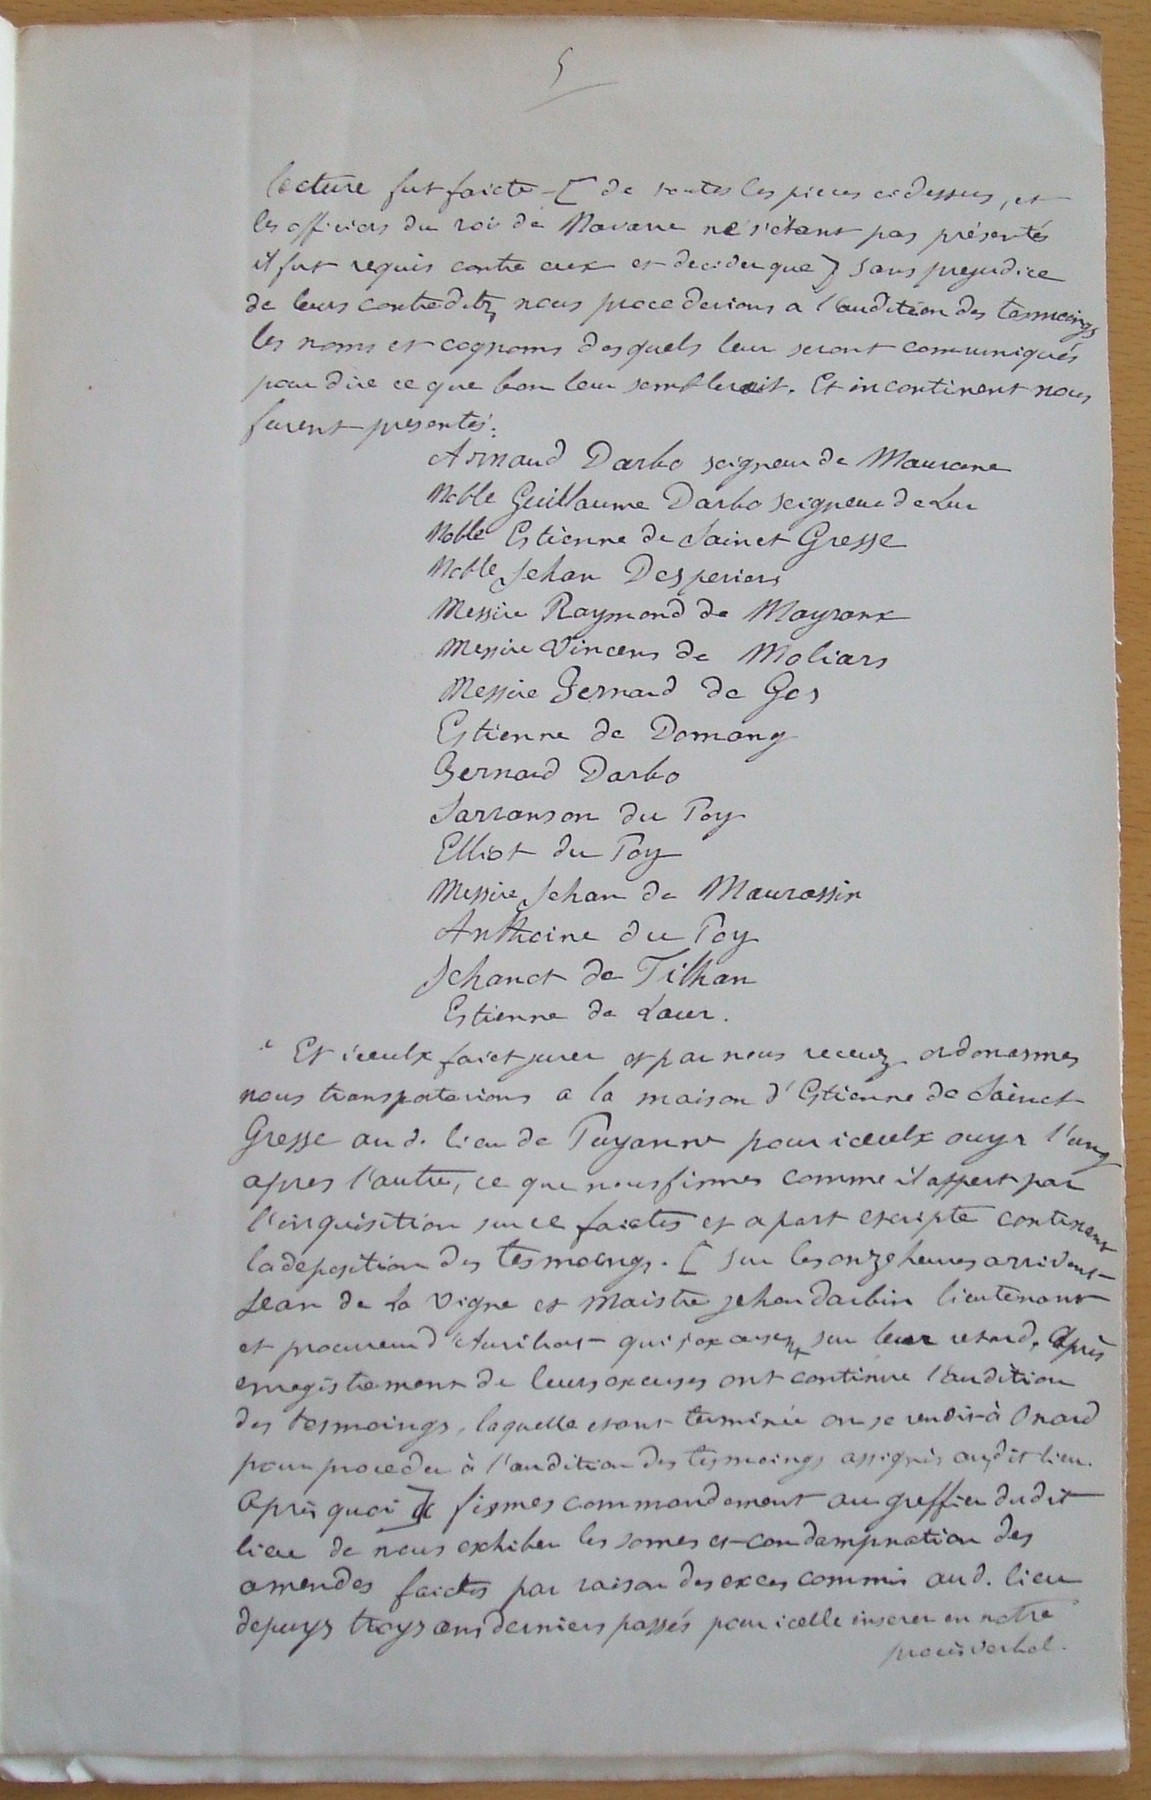 5
lecture fut faicte [ de toutes les pieces ci dessus, et
les officiers du roi de Navarre ne s'étant pas présentés
il fut requis contre eux et decider que ] sans prejudice
de leurs contreditz nous procederions a l'audition des tesmoings
les noms et cognoms desquels leur seront communiqués
pour dire ce que bon leur sembleroit. Et incontinent nous
furent presentés:
Arnaud Darbo seigneur de Maurane
Noble Guillaume Darbo seigneur de Luc
Noble Estienne de Sainct Gresse
Noble Jehan Desperiers
Messire Raymond de Mayranx
Messire Vincens de Moliars
Messire Bernard de Gos
Estienne de Domong
Bernard Darbo
Sarranson du Poy
Elliot du Poy
Messire Jehan de Maurassin
Anthoine du Poy
Jehanot de Tilhan
Estienne de Laur.
Et iceulx faict jurer et par nous receuz ordonasmes
nous transporterions a la maison d'Estienne de Sainct
Gresse aud. lieu de Poyanne pour iceulx ouyr l'ung
apres l'autre, ce que nous fismes comme il appert par
l'inquisition sur ce faictes et a part escripte contenant
la deposition des tesmoings. [ Sur les onze heures arrivent
Jean de La Vigne et Maistre Jehan Darbin lieutenant
et procureur d'Auribat qui s'excusent sur leur retard. Après
enregistrement de leurs excuses ont continue l'audition
des tesmoings, laquelle etant terminée on se rendit à Onard
pour proceder à l'audition des tesmoings assignés audit lieu.
Après quoi ] fismes commandement au greffier dudit
lieu de nous exhiber les somes et condampnation des
amendes faictes par raison des exces commis aud. lieu
depuys troys ans derniers passés pour icelle inserer en notre
procès verbal.